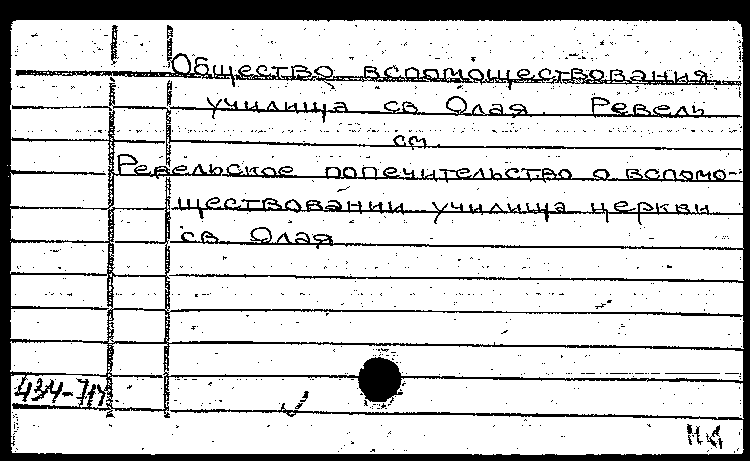 Общество вспомоществования
училища св. Олая. Ревель
см.
Ревельское попечительство о вспомо-
ществовании училища церкви
св. Олая